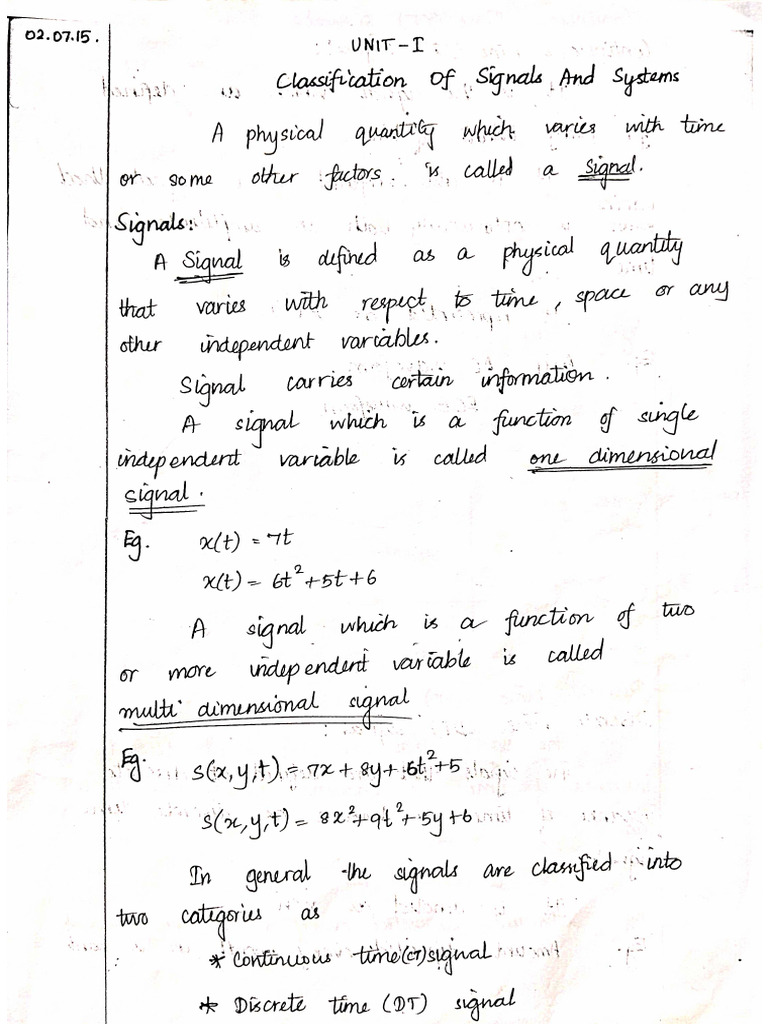 02.07.15.
UNIT-I
Classification Of Signals And Systems
A physical quantity which varies with time
or some other factors is called a Signal.
Signals:
A Signal is defined as a physical quantity
that varies with respect to time, space or any
other independent variables.
Signal carries certain information.
A signal which is a function of single
independent variable is called one dimensional
signal.
Eg. x(t) = 7t
x(t) = 6t²+5t+6
A signal which is a function of two
or more independent variable is called
multi dimensional signal
Eg. s(x,y,t) = 7x+8y+6t²+5
s(x,y,t) = 8x²+9t²+5y+6
In general the signals are classified into
two categories as
* Continuous time(CT)signal
* Discrete time (DT) signal